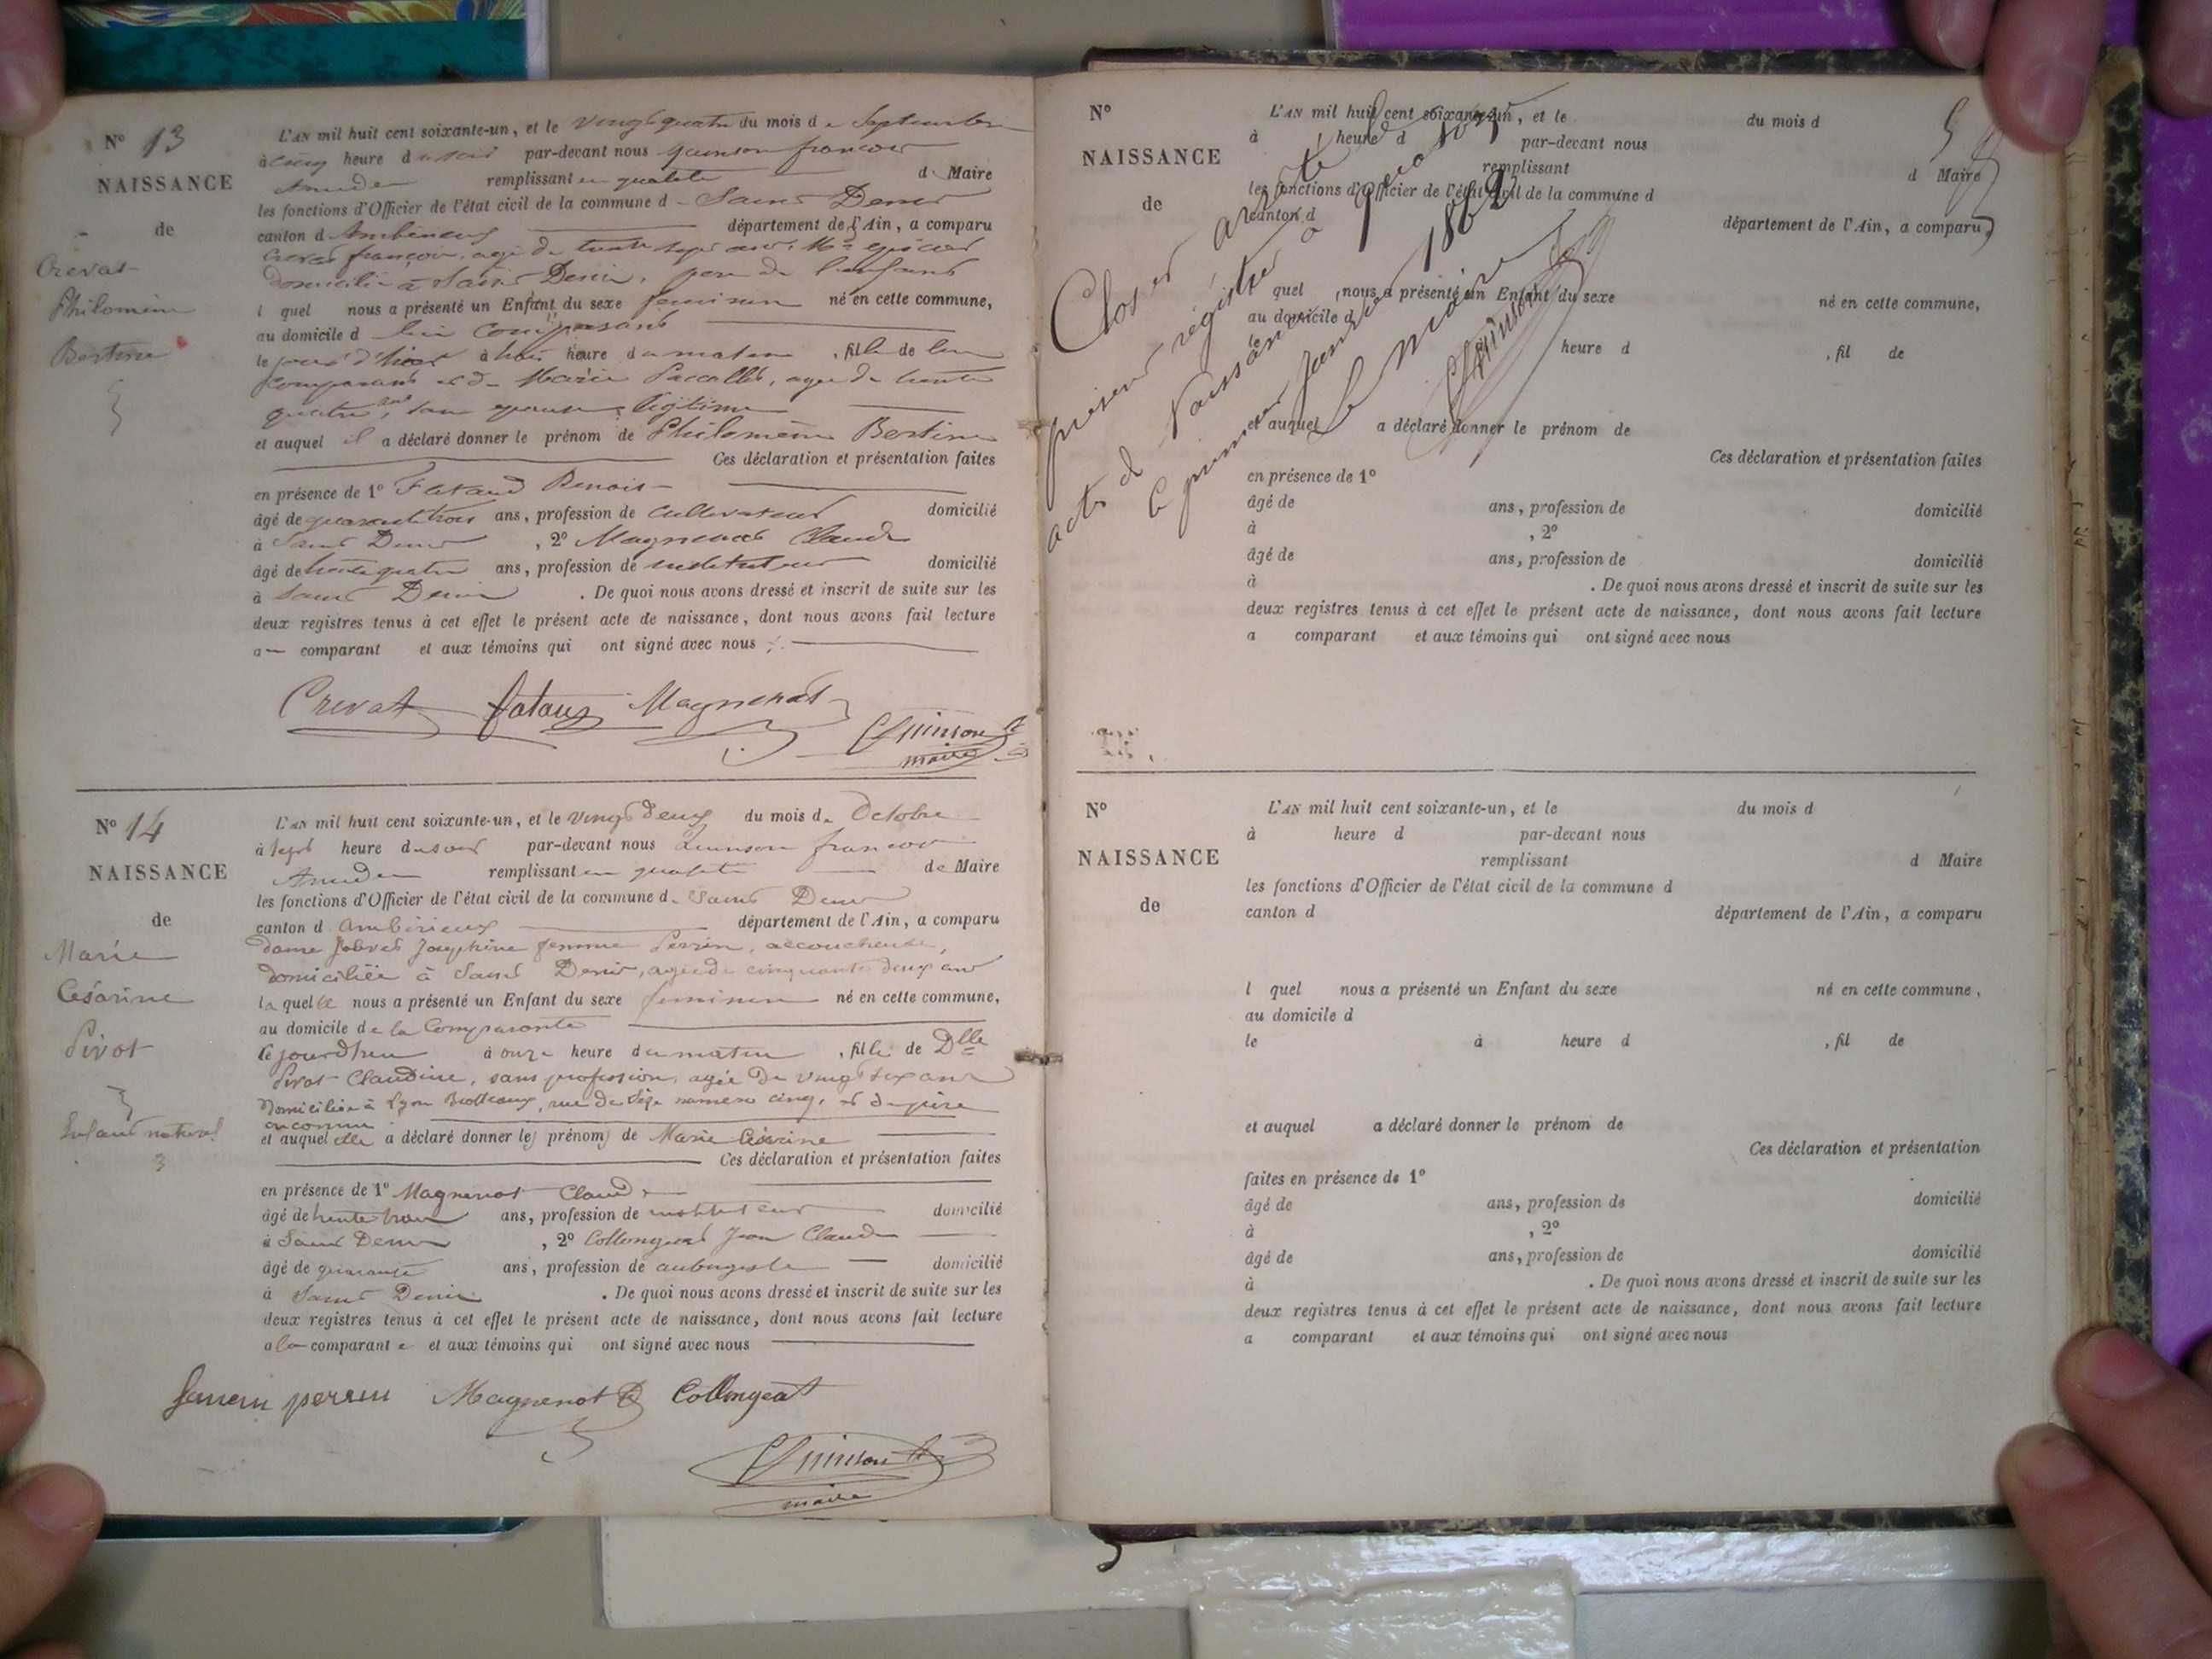 N° 13
NAISSANCE
de
Crevat
Philomène
Bertine
L'AN mil huit cent soixante-un, et le vingt quatre du mois de Septembre
à cinq heure du soir par-devant nous Quinson françois
Amédée remplissant en qualité de Maire
les fonctions d'Officier de l'état civil de la commune d Saint Denis
canton d Ambérieux département de l'Ain, a comparu
Crevat françois, agé de trente sept ans, Md épicier
domicilié à Saint Denis, père de l'enfant
l quel nous a présenté un Enfant du sexe feminin né en cette commune,
au domicile d lui Comparant
le jour d'hier à trois heure du matin , fille de lui
comparant et de Marie Paccallet, agée de trente
quatre ans, son épouse légitime
et auquel il a déclaré donner le prénom de Philomène Bertine
Ces déclaration et présentation faites
en présence de 1° Fataud Benoit
âgé de quarante trois ans, profession de cultivateur domicilié
à Saint Denis , 2° Magnenot Claude
âgé de trente quatre ans, profession de instituteur domicilié
à Saint Denis . De quoi nous avons dressé et inscrit de suite sur les
deux registres tenus à cet effet le présent acte de naissance, dont nous avons fait lecture
a comparant et aux témoins qui ont signé avec nous
Crevat fataud Magnenot
Quinson A
maire
N° 14
NAISSANCE
de
Marie
Césarine
Pivot
Enfant naturel
L'AN mil huit cent soixante-un, et le vingt deux du mois de Octobre
à sept heure du soir par-devant nous Quinson françois
Amédée remplissant en qualité de Maire
les fonctions d'Officier de l'état civil de la commune d Saint Denis
canton d Ambérieux département de l'Ain, a comparu
dame Josephine femme Perrin, accoucheuse,
domiciliée à Saint Denis, agée de cinquante deux ans
laquelle nous a présenté un Enfant du sexe feminin né en cette commune,
au domicile de la Comparante
le jourd'hui à onze heure du matin , fille de Dlle
Pivot Claudine, sans profession, agée de vingt six ans
Domiciliée à Lyon Brotteaux, rue de Sèze numéro cinq, et de père
inconnu
et auquel elle a déclaré donner les prénoms de Marie Césarine
Ces déclaration et présentation faites
en présence de 1° Magnenot Claude
âgé de trente trois ans, profession de instituteur domicilié
à Saint Denis , 2° Collongeat Jean Claude
âgé de quarante ans, profession de aubergiste domicilié
à Saint Denis . De quoi nous avons dressé et inscrit de suite sur les
deux registres tenus à cet effet le présent acte de naissance, dont nous avons fait lecture
a la comparante et aux témoins qui ont signé avec nous
femme perrin Magnenot Collongeat
Quinson A
maire
N°
NAISSANCE
de
L'AN mil huit cent soixante-un, et le du mois d
à heure d par-devant nous
remplissant d Maire
les fonctions d'Officier de l'état civil de la commune d
canton d département de l'Ain, a comparu
l quel nous a présenté un Enfant du sexe né en cette commune,
au domicile d
le heure d , fil de
et auquel a déclaré donner le prénom de
Ces déclaration et présentation faites
en présence de 1°
âgé de ans, profession de domicilié
à , 2°
âgé de ans, profession de domicilié
à . De quoi nous avons dressé et inscrit de suite sur les
deux registres tenus à cet effet le présent acte de naissance, dont nous avons fait lecture
a comparant et aux témoins qui ont signé avec nous
Clos et arrêté le
présent registre à quatorze
acts de Naissance
le premier Janvier 1862
le maire
Quinson
N°
NAISSANCE
de
L'AN mil huit cent soixante-un, et le du mois d
à heure d par-devant nous
remplissant d Maire
les fonctions d'Officier de l'état civil de la commune d
canton d département de l'Ain, a comparu
l quel nous a présenté un Enfant du sexe né en cette commune,
au domicile d
le à heure d , fil de
et auquel a déclaré donner le prénom de
Ces déclaration et présentation
faites en présence de 1°
âgé de ans, profession de domicilié
à , 2°
âgé de ans, profession de domicilié
à . De quoi nous avons dressé et inscrit de suite sur les
deux registres tenus à cet effet le présent acte de naissance, dont nous avons fait lecture
a comparant et aux témoins qui ont signé avec nous